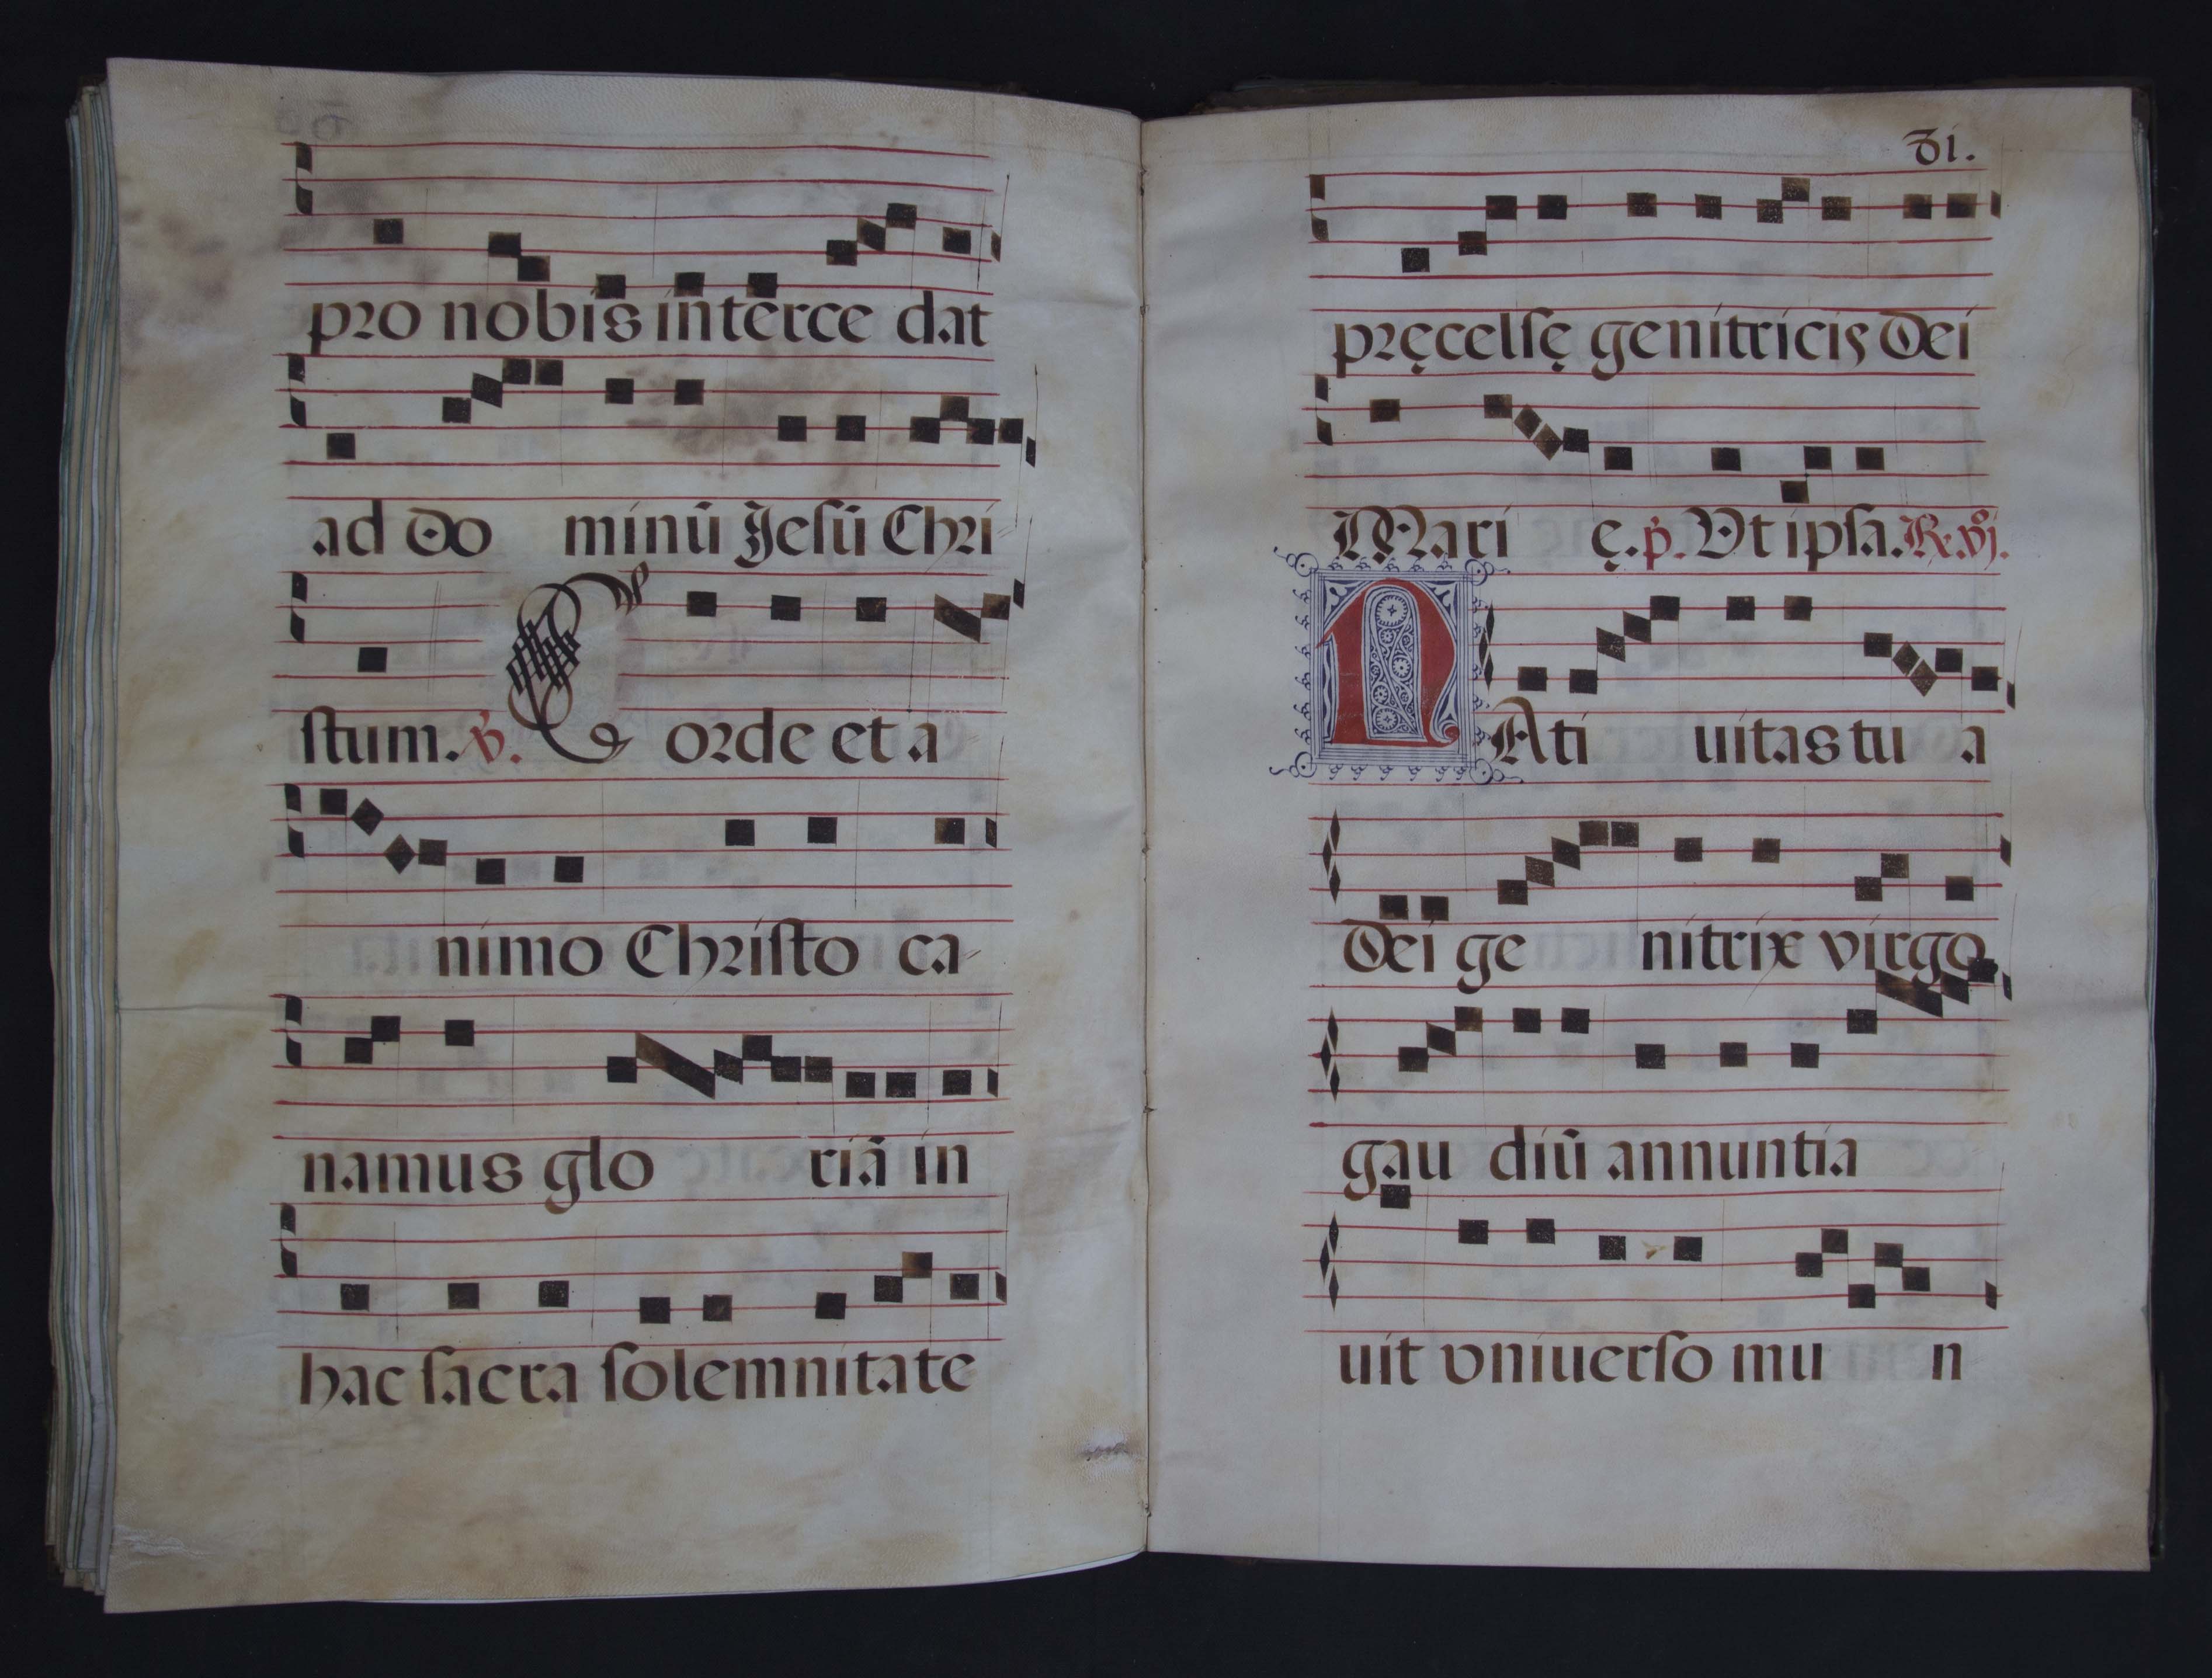 pro nobis interce dat
ad do minū Jesū Chri
stum. ℣. Corde et a
nimo Christo ca
namus glo riā in
hac sacra solemnitate
81.
pręcelsę genitricis dei
Mari ę. p̃. Vt ipsa. R. vj.
NAti uitas tu a
dei ge nitrix virgo
gau diū annuntia
uit vniuerso mu n